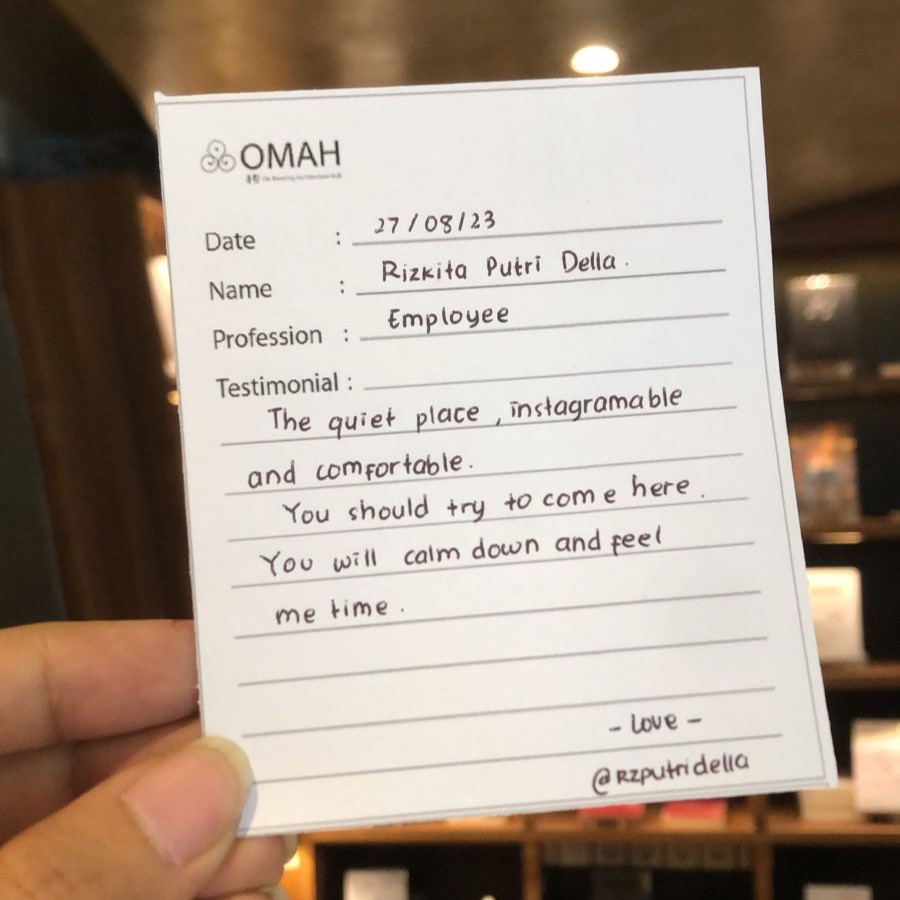 OMAH
Date : 27/08/23
Name : Rizkita Putri Della.
Profession : Employee
Testimonial :
The quiet place, instagramable
and comfortable.
You should try to come here.
You will calm down and feel
me time.
- Love -
@RZputridella